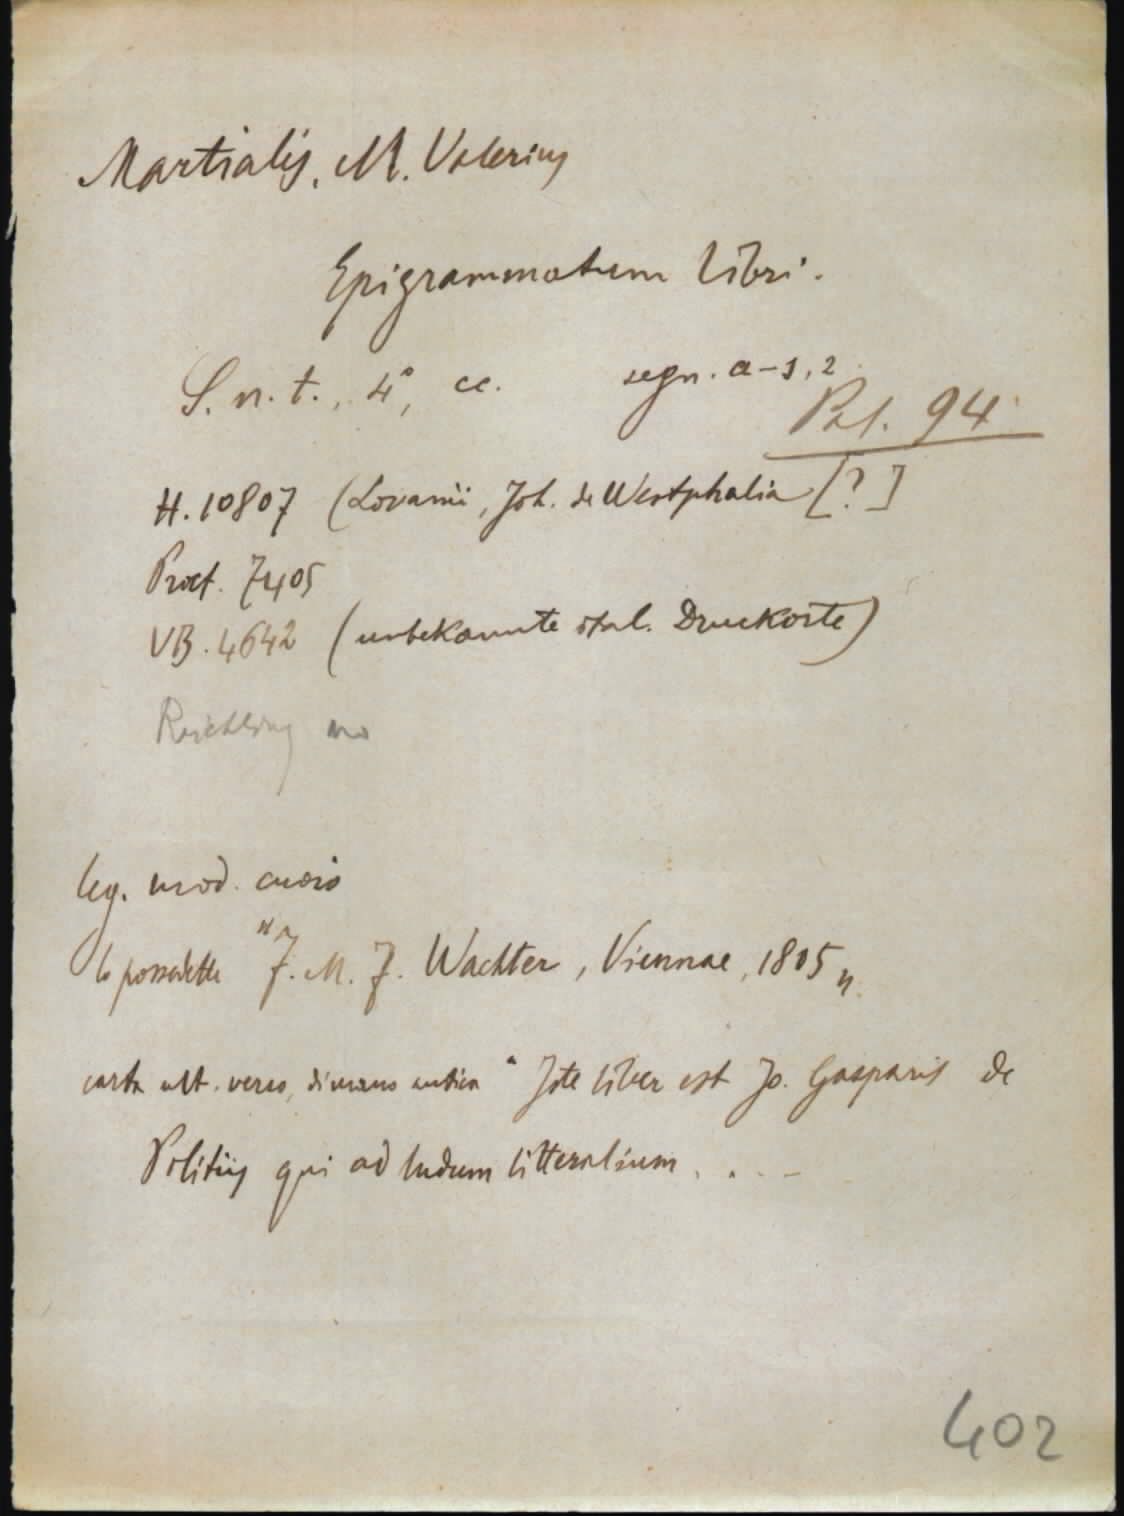 Martialis, M. Valerius
Epigrammatum libri.
S. n. t., 4°, cc. segn. a-s, 2
Pal. 94
H. 10807 (Lovanii, Joh. de Westphalia [?]
Proct. 7405
VB. 4642 (unbekannte ital. Druckorte)
Reichling no
leg. mod. cuoio
lo possedette "J. M. J. Wachter, Viennae, 1805"
carta ult. verso, di mano antica "Iste liber est Jo. Gasparis de
Politiis qui ad ludum litteralium . . . -
402